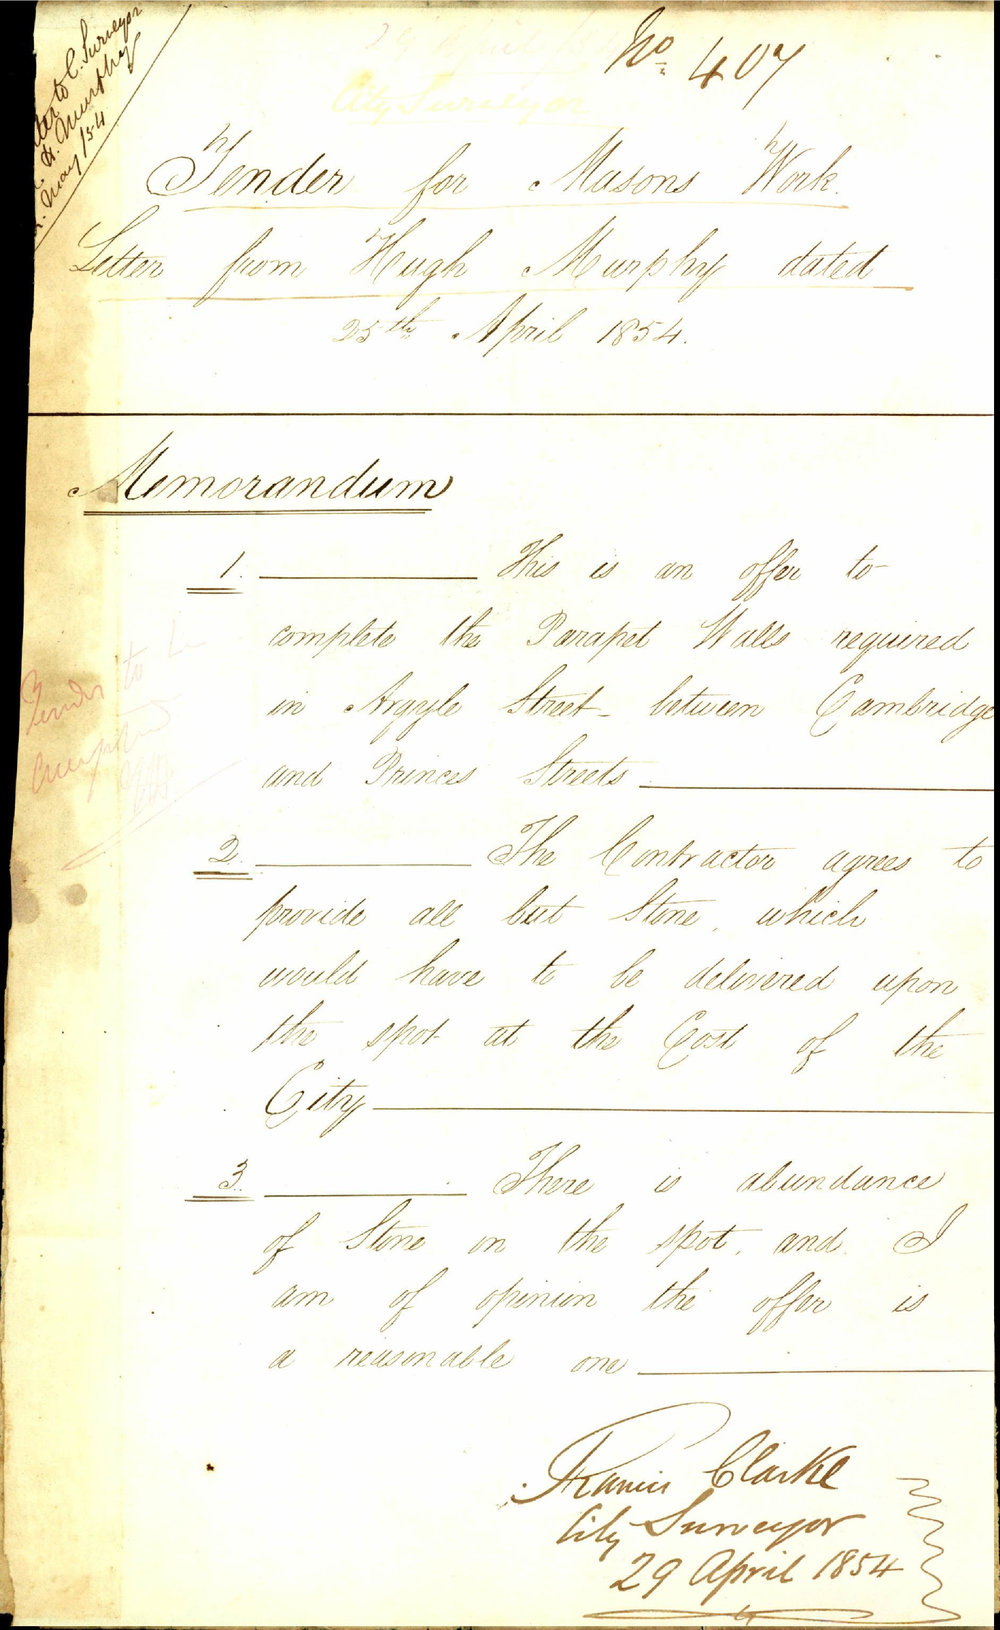 to C. Surveyor
H. Murphy
May /54
No. 407
City Surveyor
Tender for Masons Work.
Letter from Hugh Murphy dated
25th April 1854.
Memorandum
1. This is an offer to
complete the Parapet Walls required
in Argyle Street between Cambridge
and Princes Streets
Tender to be
2. The Contractor agrees to
provide all but Stone, which
would have to be delivered upon
the spot at the Cost of the
City
3. There is abundance
of Stone on the spot, and I
am of opinion the offer is
a reasonable one
Francis Clarke
City Surveyor
29 April 1854